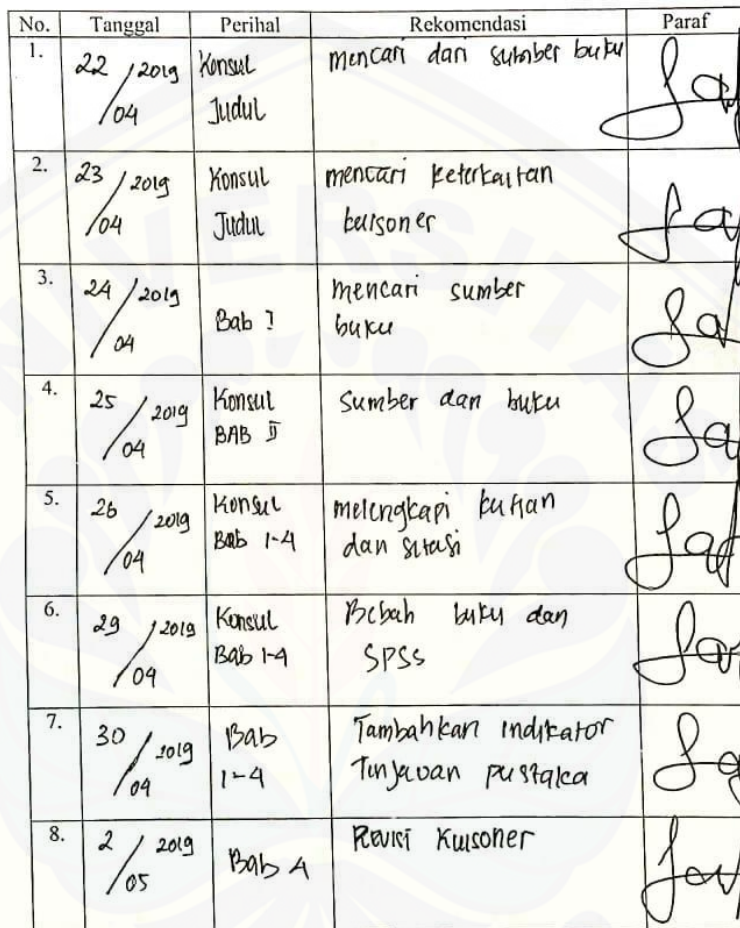 No. Tanggal Perihal Rekomendasi Paraf
1. 22/04/2019 Konsul Judul mencari dari sumber buku
2. 23/04/2019 Konsul Judul mencari keterkaitan
kuisoner
3. 24/04/2019 Bab I mencari sumber
buku
4. 25/04/2019 Konsul BAB II Sumber dan buku
5. 26/04/2019 Konsul Bab 1-4 melengkapi kutian
dan sitasi
6. 29/04/2019 Konsul Bab 1-4 buku dan
SPSS
7. 30/04/2019 Bab 1-4 Tambahkan indikator
Tinjauan pustaka
8. 2/05/2019 Bab 4 Revisi Kuisoner
UNIVERSITAS